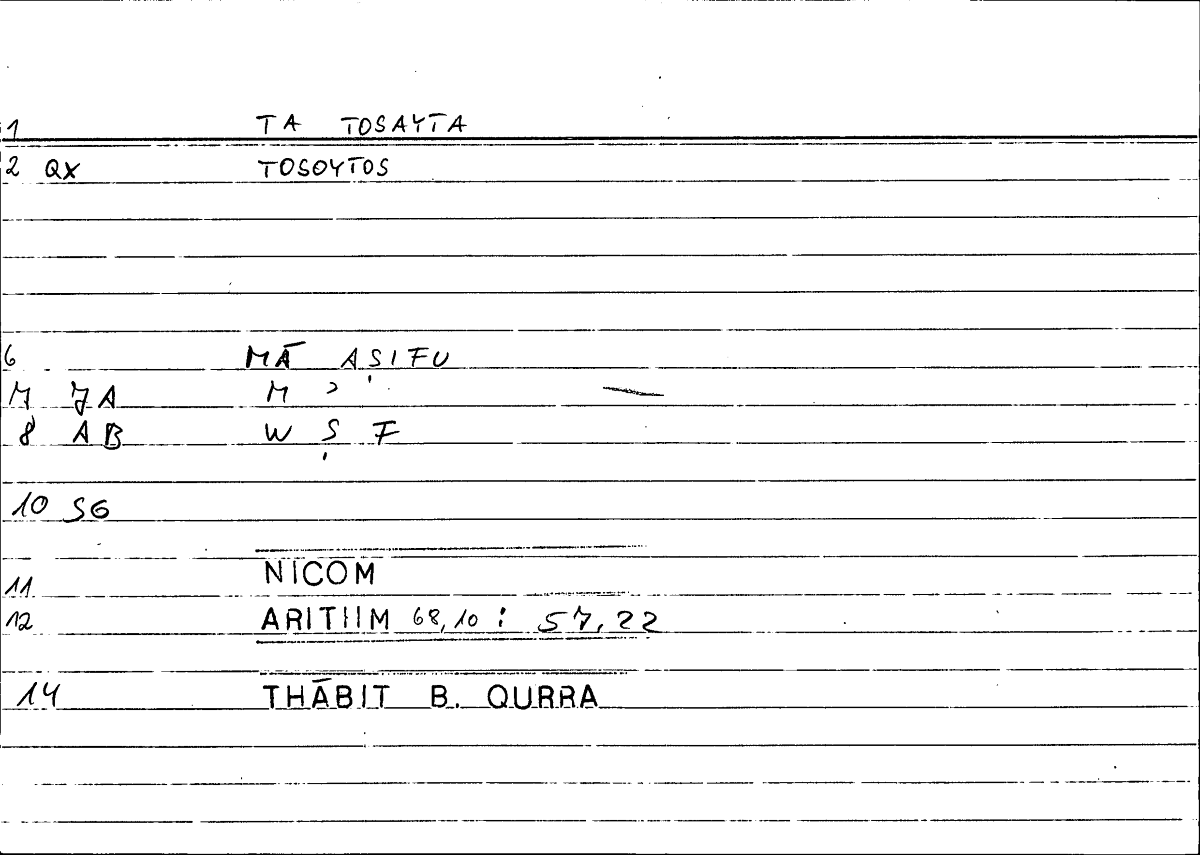 1 TA TOSAYTA
2 QX TOSOYTOS
6 MĀ AṢIFU
7 JA M ʾ
8 AB W Ṣ F
10 SG
11 NICOM
12 ARITIIM 68,10 : 57,22
14 THĀBIT B. QURRA